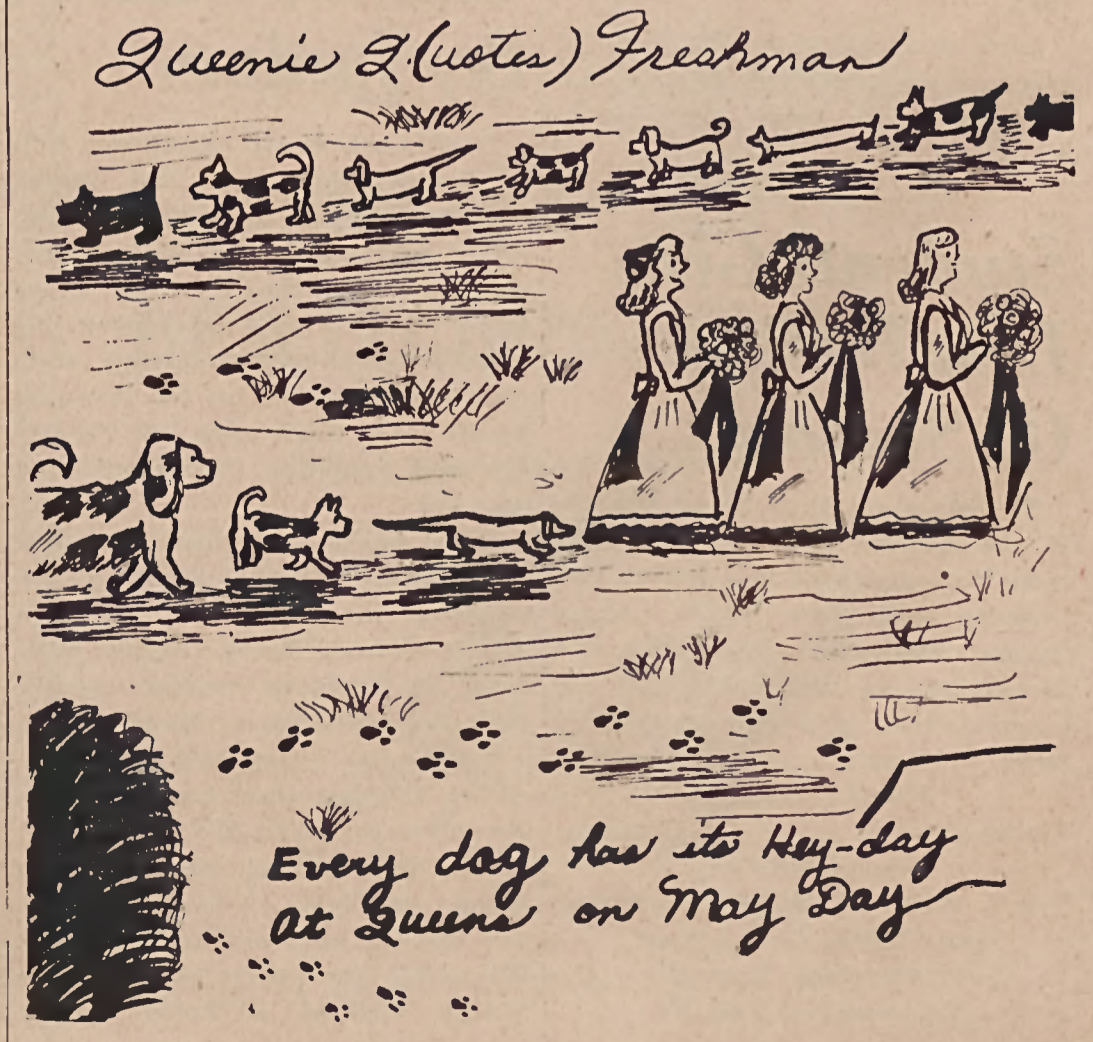 Queenie Q.(uotes) Freshman
Every dog has its Hey-day
at Queens on May Day